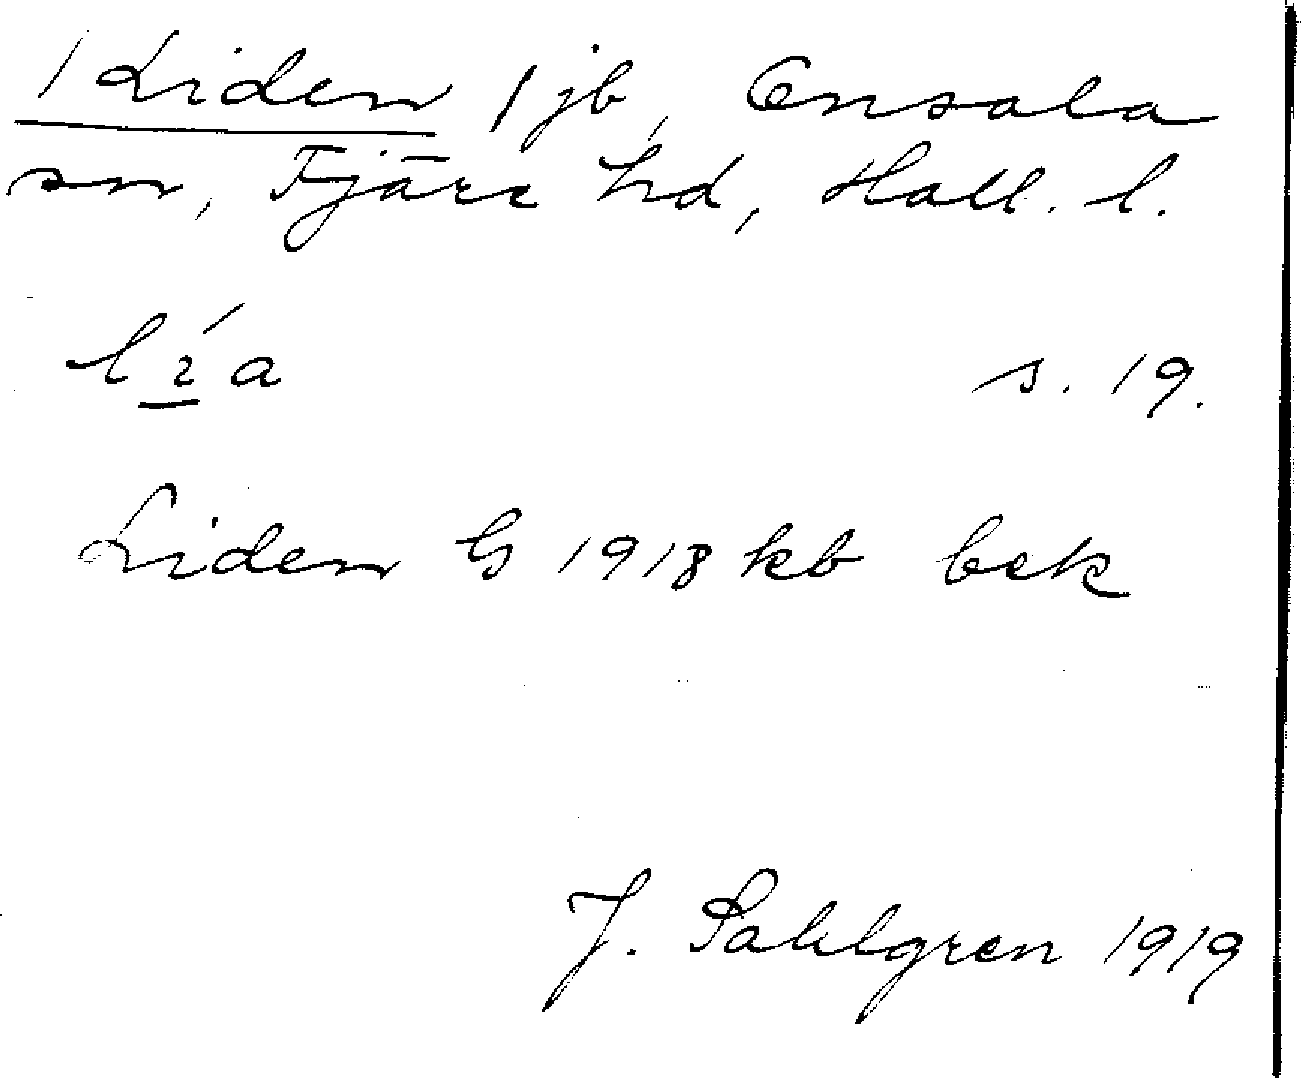 1 Liden 1 jb, Onsala
sn, Fjäre hd, Hall. l.
lı̱́a s. 19.
Liden G 1918 kb bek
J. Sahlgren 1919